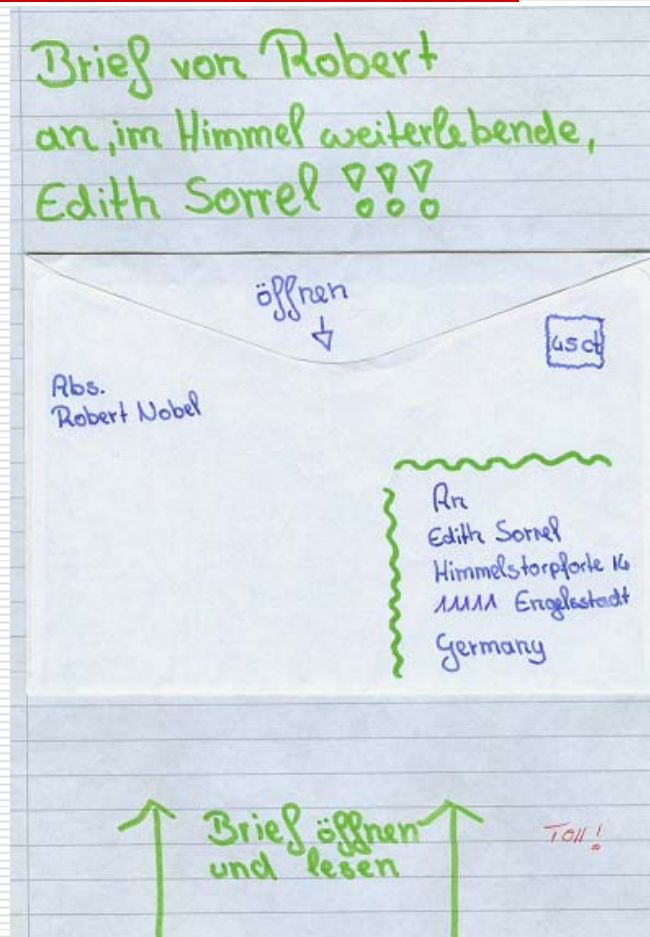 Brief von Robert
an, im Himmel weiterlebende,
Edith Sorrel !!!
öffnen
45 ct
Abs.
Robert Nobel
An
Edith Sorrel
Himmelstorpforte 16
11111 Engelsstadt
Germany
Brief öffnen
und lesen
Toll!